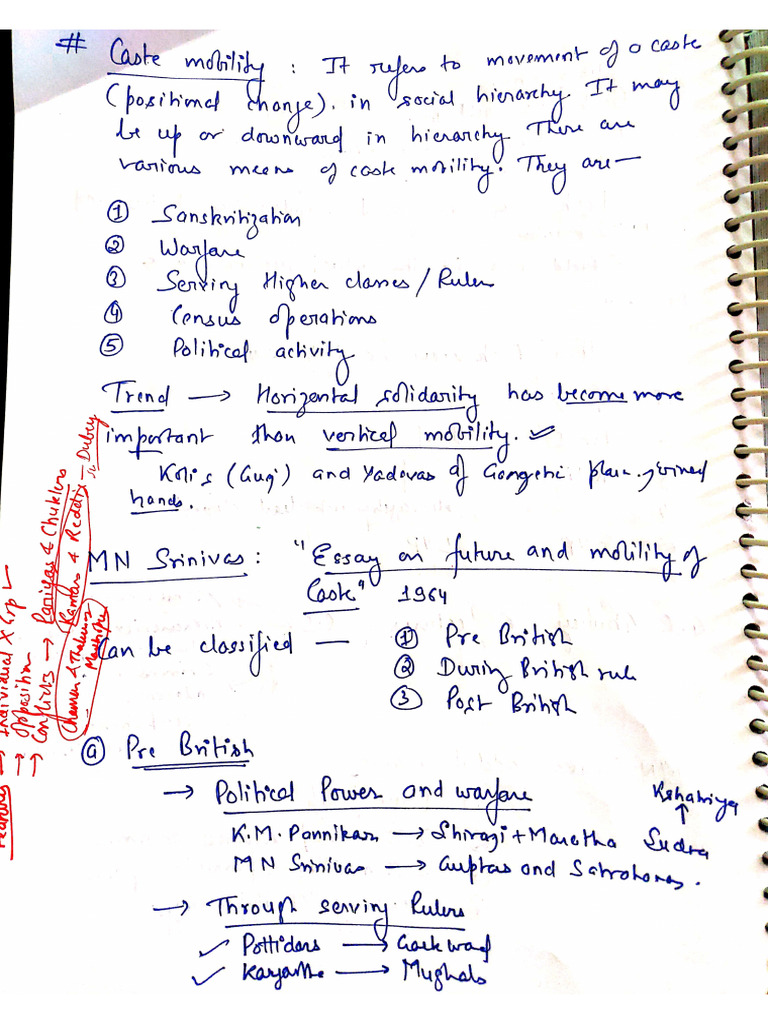 # Caste mobility : It refers to movement of a caste
(positional change). in social hierarchy. It may
be up or downward in hierarchy. There are
various means of caste mobility. They are —
① Sanskritization
② Warfare
③ Serving Higher classes / Rulers
④ Census operations
⑤ Political activity
Trend → Horizental solidarity has become more
important than vertical mobility. ✓
Kolis (Guj) and Yadavas of Gangetic plain joined
hands.
MN Srinivas : "Essay on future and mobility of
Caste" 1964
Can be classified — ① Pre British
② During British rule
③ Post British
ⓐ Pre British
→ Political Power and warfare
Kshatriya
↑
K.M. Pannikar → Shivagi + Maratha Sudra
MN Srinivas → Guptas and Satvahanas.
→ Through serving Rulers
✓ Pattidars → Gaekwad
✓ Kayastha → Mughals
Features → Individual X Grp ✓
→ opposition
→ Conflicts → Paniyas & Chuklers
Kammas & Reddis — Dubey